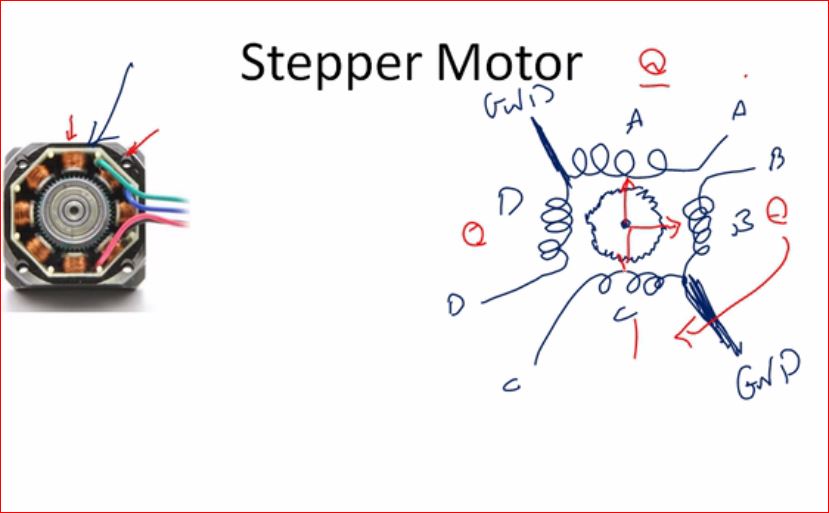 Stepper Motor
0
GND
A
A
B
D
B
0
0
D
C
1
C
GND